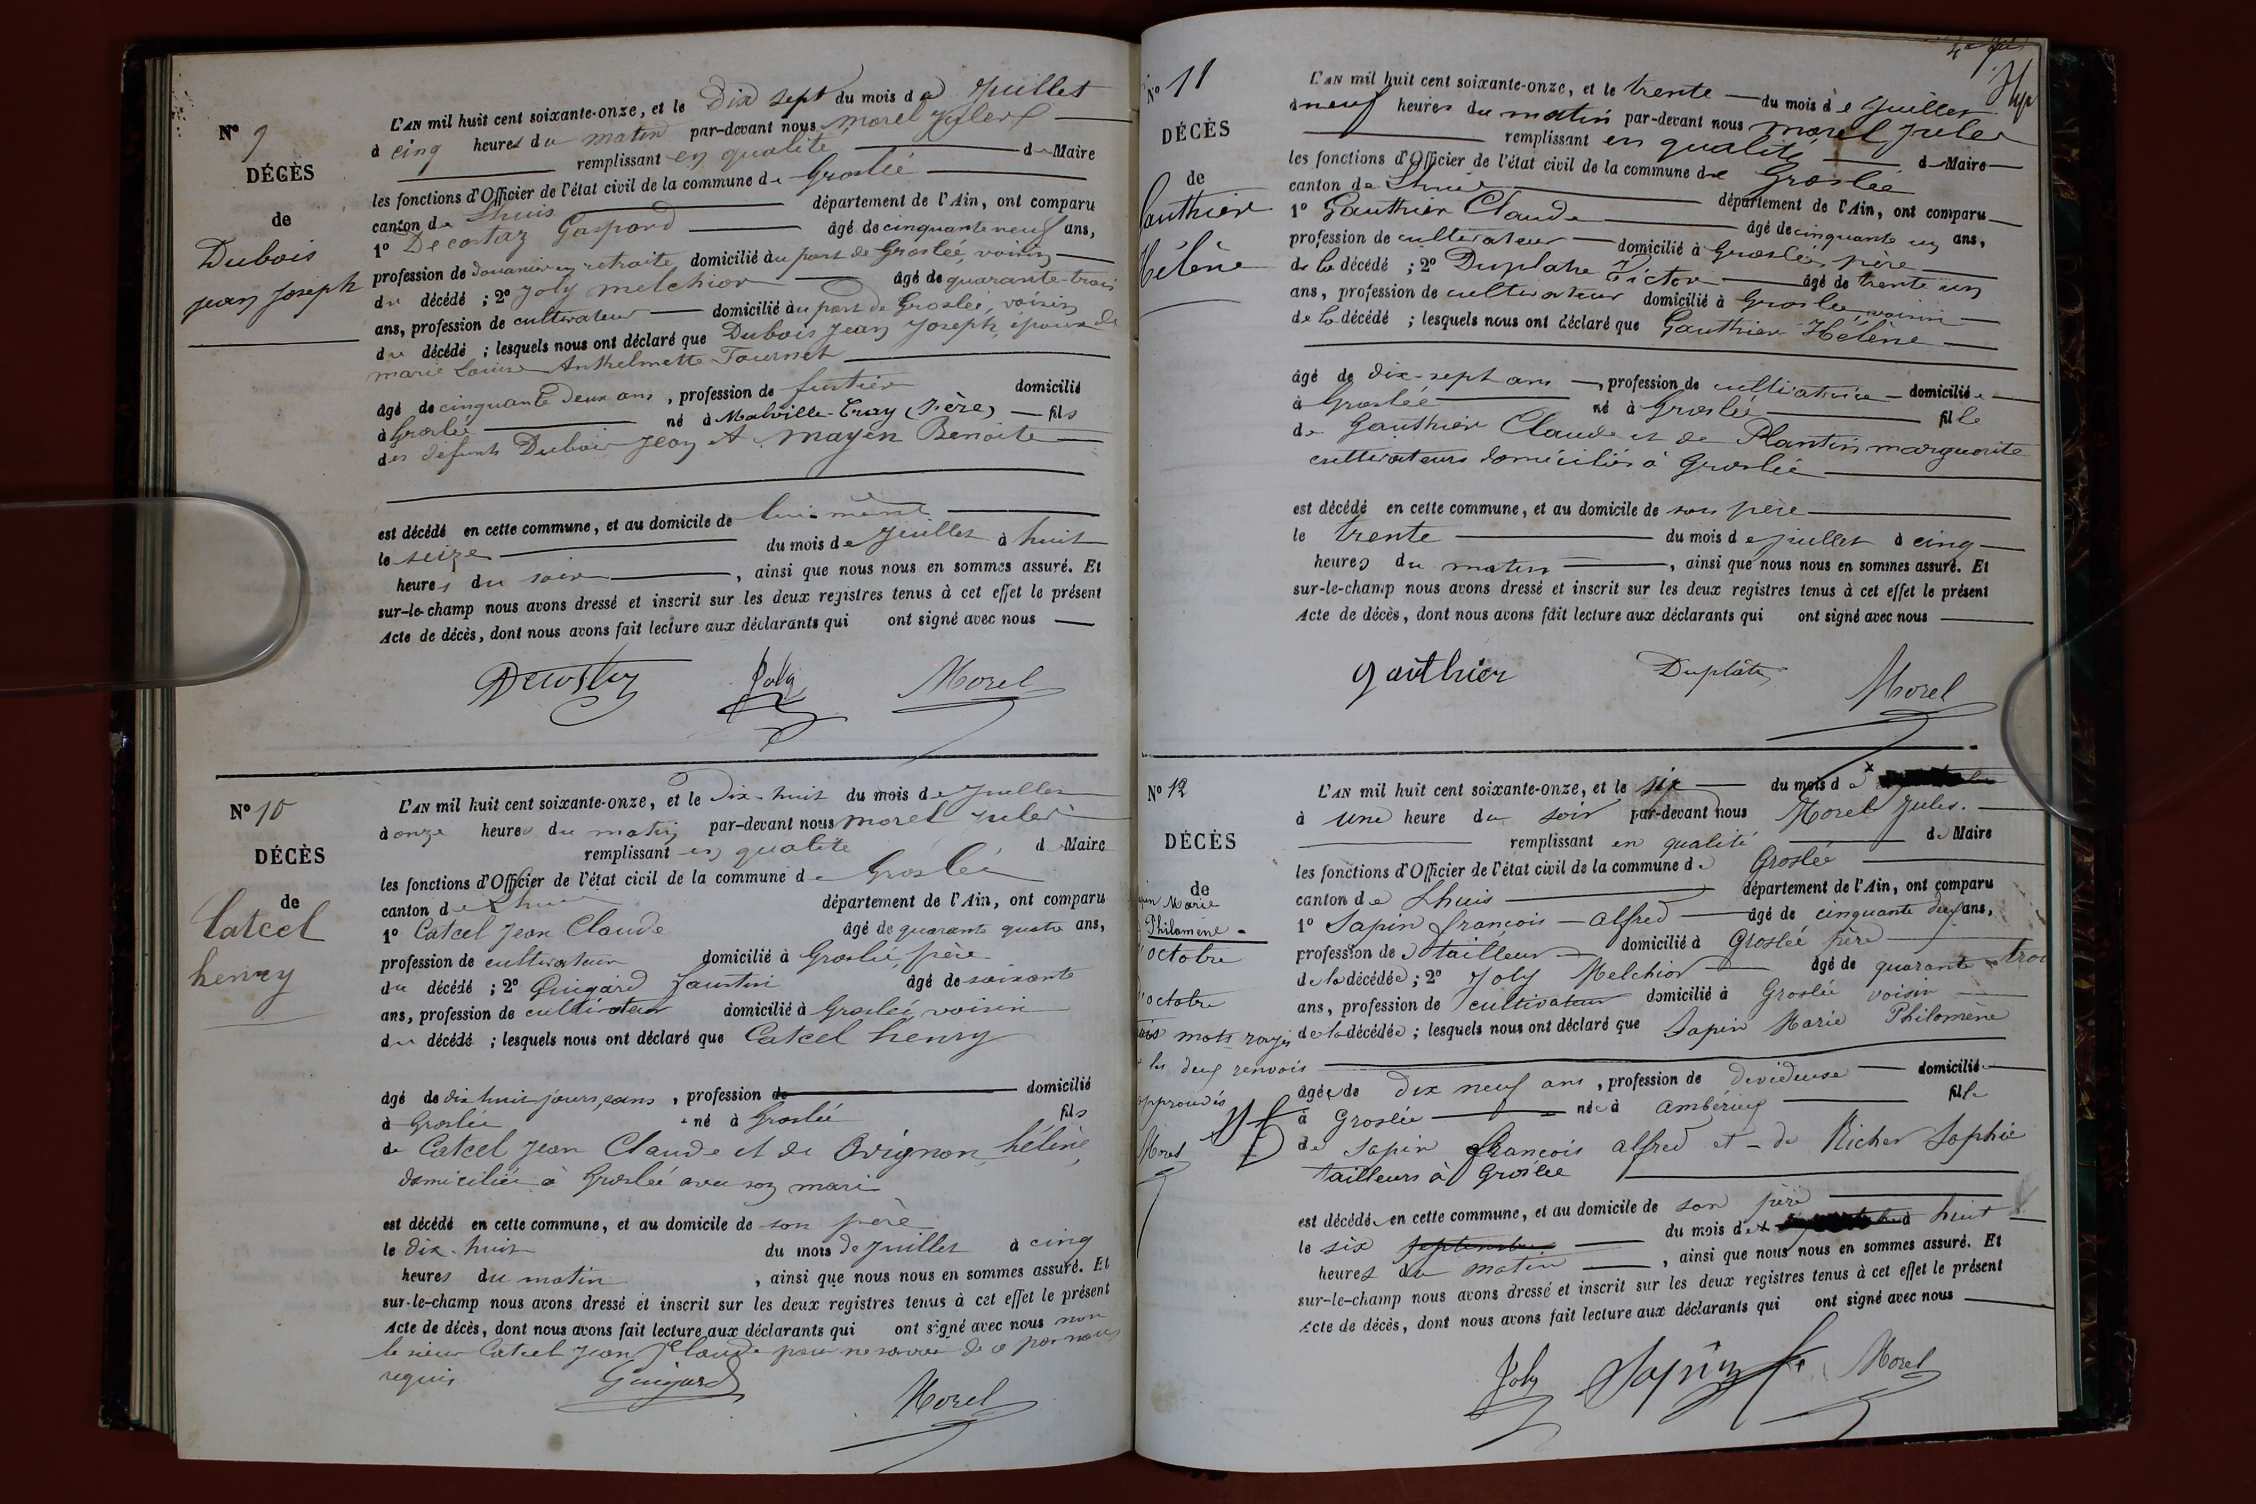 N° 9
DÉCÈS
de
Dubois
jean joseph
L'AN mil huit cent soixante-onze, et le Dix sept du mois de juillet
à cinq heures du matin par-devant nous morel jules
remplissant en qualité de Maire
les fonctions d'Officier de l'état civil de la commune de Groslée
canton de Lhuis département de l'Ain, ont comparu
1° Decostaz Gaspard âgé de cinquante neuf ans,
profession de douanier en retraite domicilié à au port de Groslée, voisin
du décédé ; 2° joly melchior âgé de quarante-trois
ans, profession de cultivateur domicilié à au port de Groslée, voisin
du décédé ; lesquels nous ont déclaré que Dubois jean joseph, époux de
marie Louise Anthelmette Tournet
âgé de cinquante deux ans, profession de domicilié
à Groslée né à Malville-Cray (Isère) fils
des défunts Dubois jean et mayen Benoite
est décédé en cette commune, et au domicile de lui-même
le seize du mois de juillet à huit
heures du soir, ainsi que nous nous en sommes assuré. Et
sur-le-champ nous avons dressé et inscrit sur les deux registres tenus à cet effet le présent
Acte de décès, dont nous avons fait lecture aux déclarants qui ont signé avec nous
Joly Morel
N° 10
DÉCÈS
de
Catcel
henry
L'AN mil huit cent soixante-onze, et le Dix-huit du mois de juillet
à onze heures du matin par-devant nous morel jules
remplissant en qualité d Maire
les fonctions d'Officier de l'état civil de la commune de Groslée
canton de Lhuis département de l'Ain, ont comparu
1° Catcel jean Claude âgé de quarante quatre ans,
profession de cultivateur domicilié à Groslée, père
du décédé ; 2° Guigard faustin âgé de soixante
ans, profession de cultivateur domicilié à Groslée, voisin
du décédé ; lesquels nous ont déclaré que Catcel henry
âgé de dix huit jours, sans, profession de domicilié
à Groslée né à Groslée fils
de Catcel jean Claude et de Avignon hélène,
domiciliée à Groslée avec son mari
est décédé en cette commune, et au domicile de son père
le dix-huit du mois de juillet à cinq
heures du matin, ainsi que nous nous en sommes assuré. Et
sur-le-champ nous avons dressé et inscrit sur les deux registres tenus à cet effet le présent
Acte de décès, dont nous avons fait lecture aux déclarants qui ont signé avec nous non
le sieur Catcel jean Claude pour ne savoir de ce par nous
requis
Guigard Morel
N° 11
DÉCÈS
de
Gauthier
Hélène
L'AN mil huit cent soixante-onze, et le trente du mois de juillet
à neuf heures du matin par-devant nous morel jules
remplissant en qualité de Maire
les fonctions d'Officier de l'état civil de la commune de Groslée
canton de Lhuis département de l'Ain, ont comparu
1° Gauthier Claude âgé de cinquante un ans,
profession de cultivateur domicilié à Groslée, père
de la décédé ; 2° Duplatre Victor âgé de trente un
ans, profession de cultivateur domicilié à Groslée, voisin
de la décédé ; lesquels nous ont déclaré que Gauthier Hélène
âgé de dix-sept ans, profession de cultivatrice domiciliée
à Groslée né à Groslée fille
de Gauthier Claude et de Plantin marguerite
cultivateurs domiciliés à Groslée
est décédé en cette commune, et au domicile de son père
le trente du mois de juillet à cinq
heures du matin, ainsi que nous nous en sommes assuré. Et
sur-le-champ nous avons dressé et inscrit sur les deux registres tenus à cet effet le présent
Acte de décès, dont nous avons fait lecture aux déclarants qui ont signé avec nous
gauthier Duplatre Morel
N° 12
DÉCÈS
de
Marie
Philomène
octobre
octobre
mots rayés
les deux renvois
approuvés
Morel
L'AN mil huit cent soixante-onze, et le six du mois de
à une heure du soir par-devant nous Morel Jules.
remplissant en qualité de Maire
les fonctions d'Officier de l'état civil de la commune de Groslée
canton de Lhuis département de l'Ain, ont comparu
1° Sapin françois-alfred âgé de cinquante deux ans,
profession de tailleur domicilié à Groslée père
de la décédée ; 2° Joly Melchior âgé de quarante-trois
ans, profession de cultivateur domicilié à Groslée voisin
de la décédée ; lesquels nous ont déclaré que Sapin Marie Philomène
âgée de dix neuf ans, profession de devideuse domiciliée
à Groslée née à ambérieux fille
de Sapin françois alfred et de Richer Sophie
tailleurs à Groslée
est décédée en cette commune, et au domicile de son père
le six septembre du mois de à huit
heures du matin, ainsi que nous nous en sommes assuré. Et
sur-le-champ nous avons dressé et inscrit sur les deux registres tenus à cet effet le présent
Acte de décès, dont nous avons fait lecture aux déclarants qui ont signé avec nous
Joly Sapin Morel